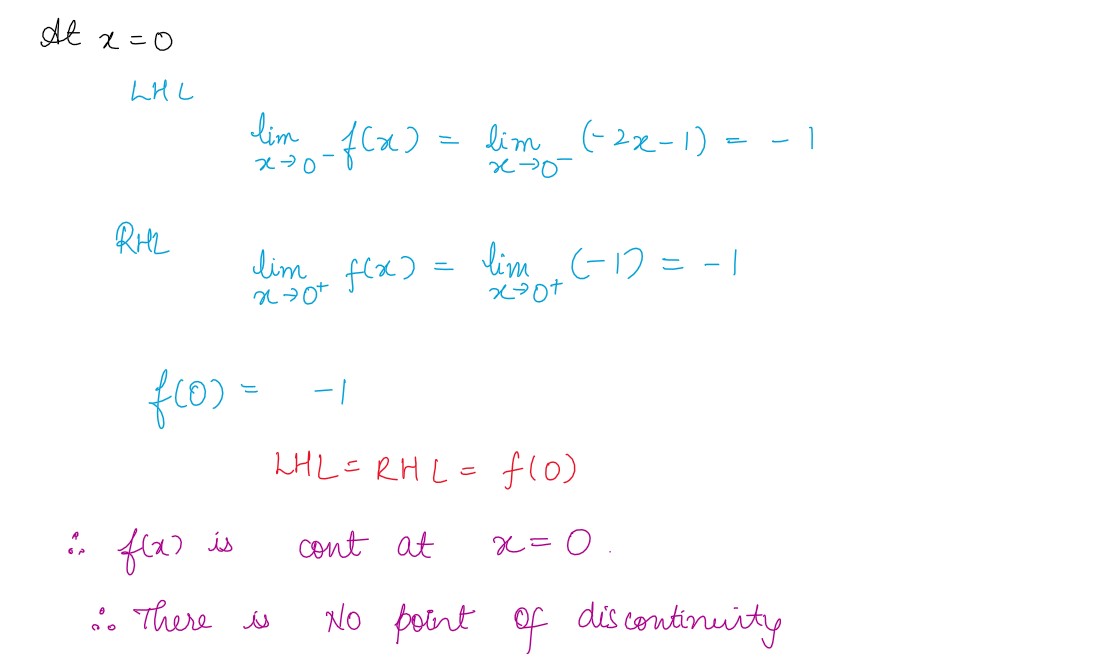 At x = 0
LHL
lim x→0⁻ f(x) = lim x→0⁻ (-2x-1) = -1
RHL
lim x→0⁺ f(x) = lim x→0⁺ (-1) = -1
f(0) = -1
LHL = RHL = f(0)
∴ f(x) is cont at x = 0.
∴ There is No point of discontinuity